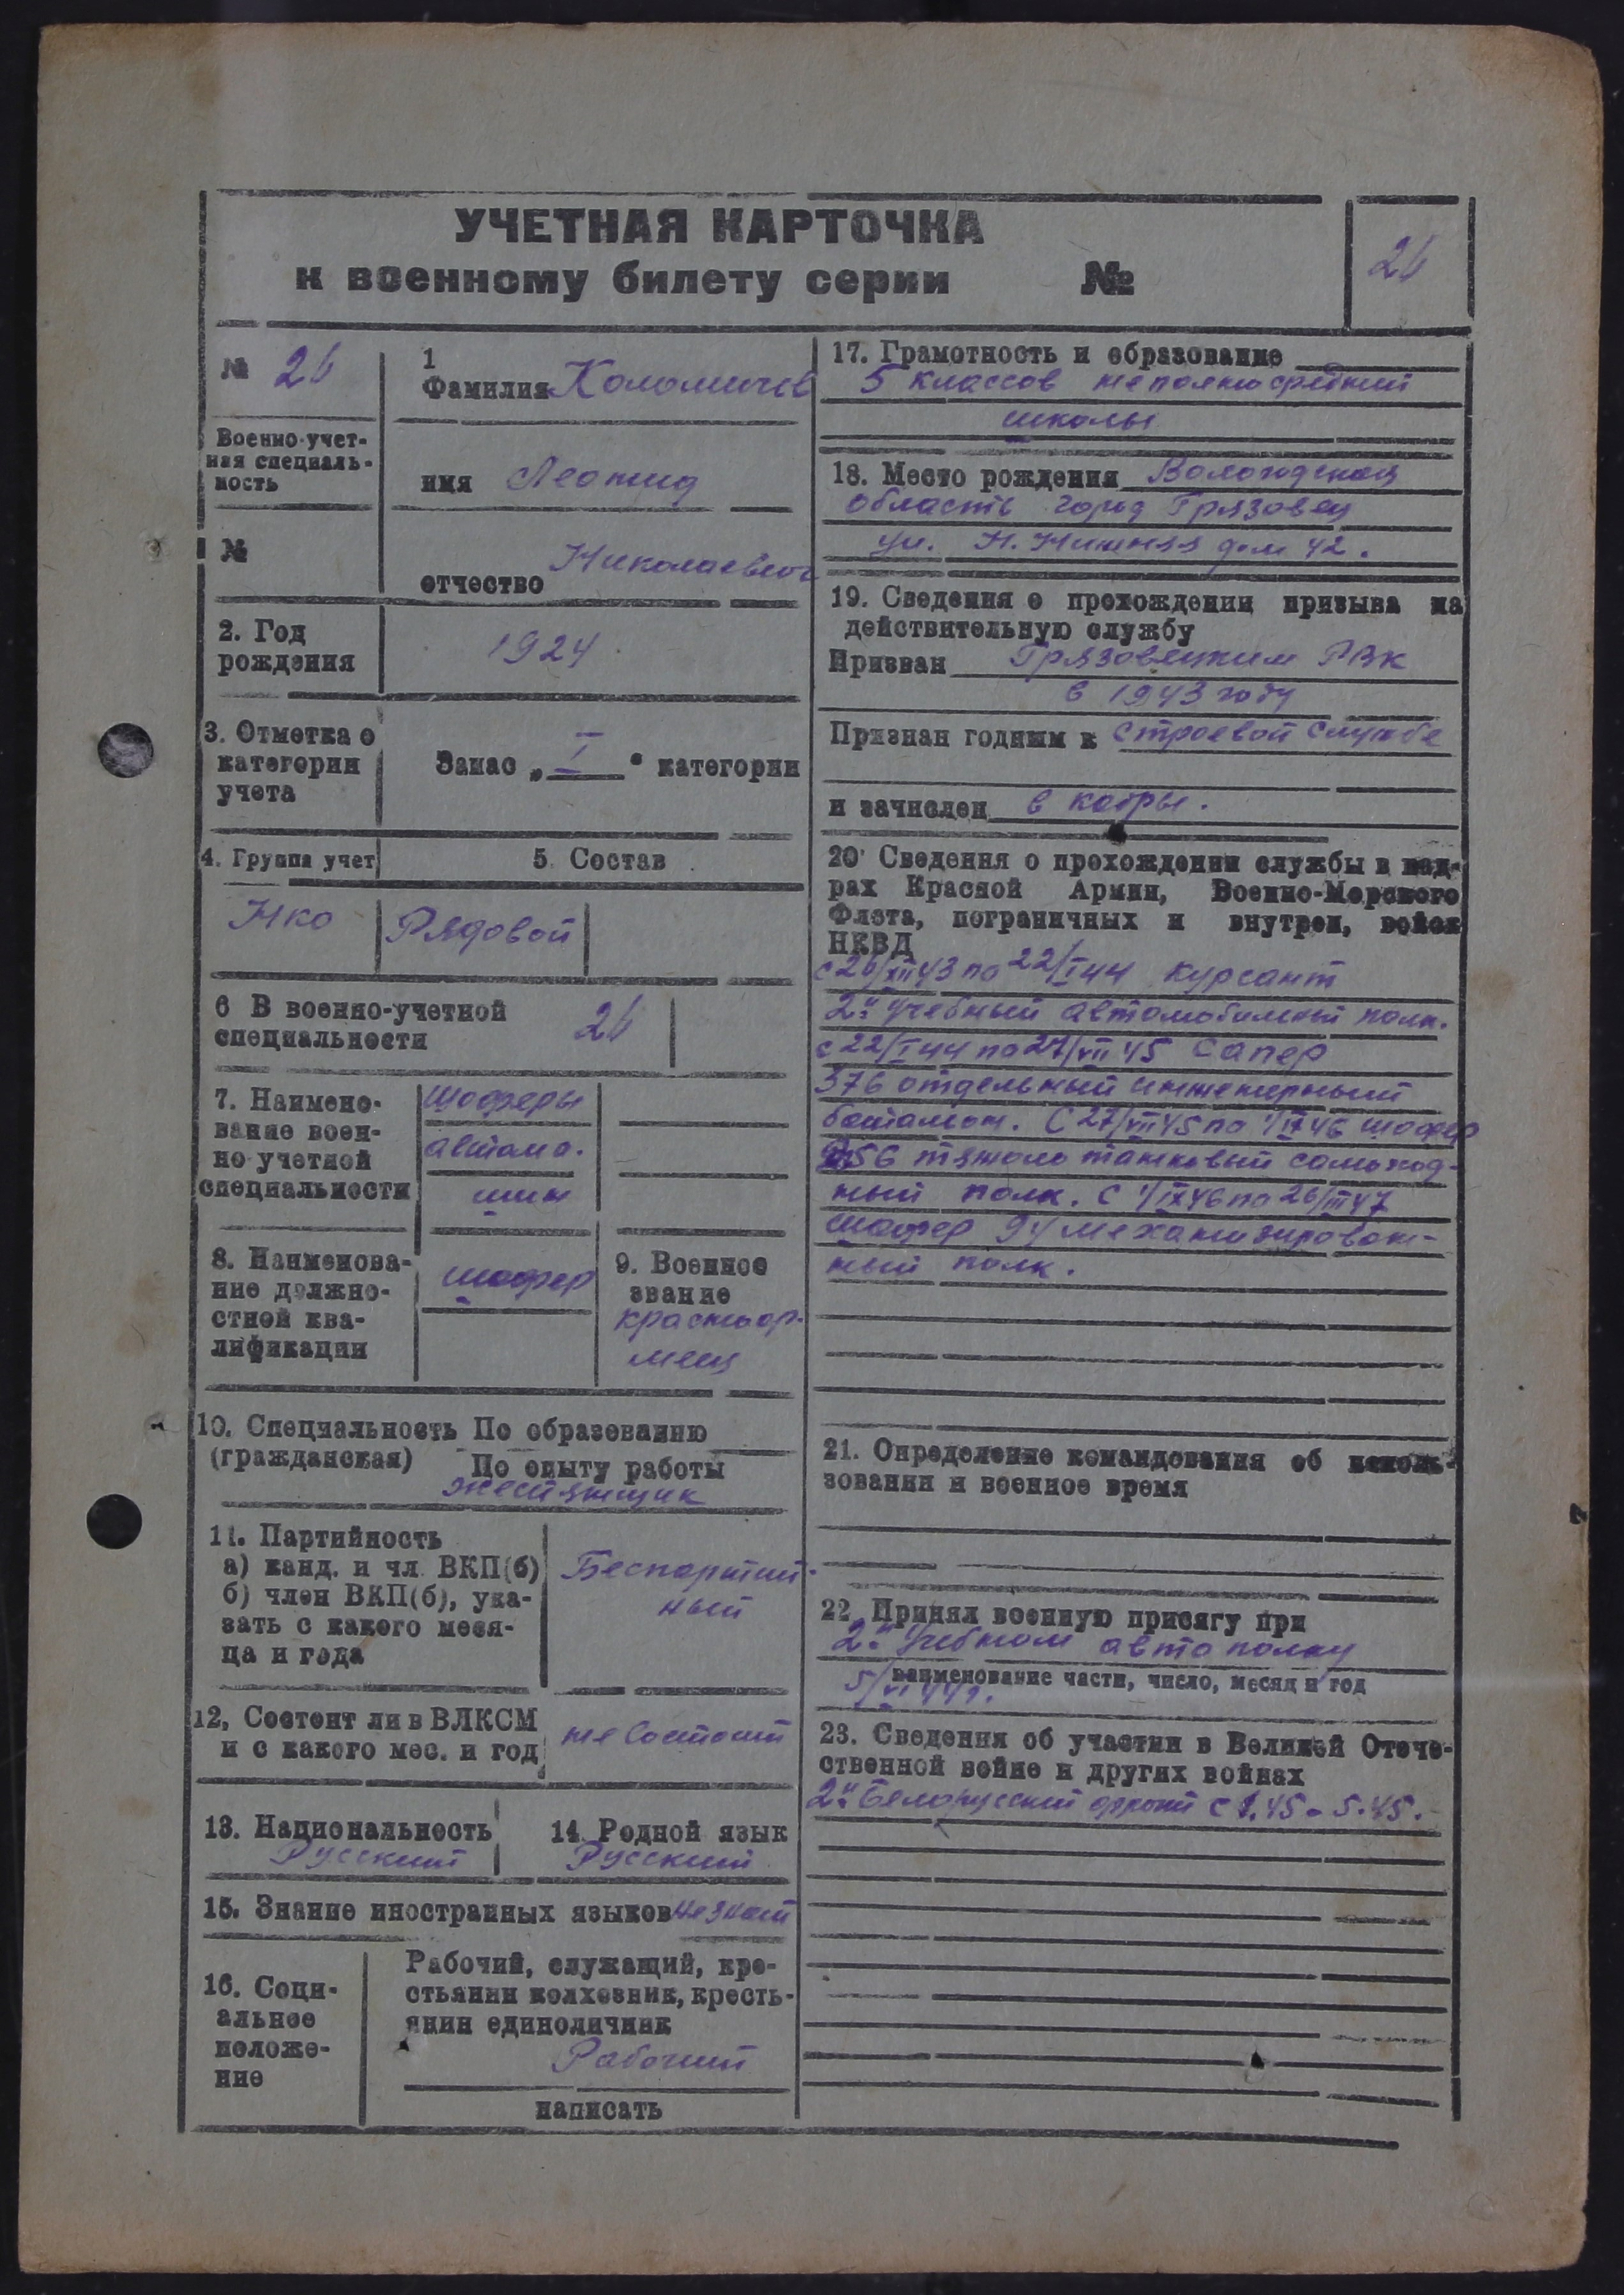 УЧЕТНАЯ КАРТОЧКА
к военному билету серии №
26
№ 26
Военно-учет-
ная специаль-
ность
№
1
Фамилия Коломичев
имя Леонид
Николаевич
отчество
2. Год
рождения
1924
3. Отметка о
категории
учета
Запас „I“ категории
4. Группа учет
5. Состав
Нко
Рядовой
6 В военно-учетной
специальности
26
7. Наимено-
вание воен-
но учетной
специальности
Шоферы
автома.
шин
8. Наименова-
ние должно-
стной ква-
лификации
шофер
9. Военное
звание
красноар-
меец
10. Специальность По образованию
(гражданская) По опыту работы
жестянщик
11. Партийность
а) канд. и чл ВКП(б)
б) член ВКП(б), ука-
зать с какого меся-
ца и года
Беспартий-
ный
12, Состоит ли в ВЛКСМ
и с какого мес. и год
не состоит
13. Национальность
Русский
14. Родной язык
Русский
15. Знание иностранных языков не знает
16. Соци-
альное
положе-
ние
Рабочий, служащий, кре-
стьянин колхозник, кресть-
янин единоличник
Рабочий
написать
17. Грамотность и образование
5 классов неполно средний
школы
18. Место рождения Вологодская
область город Грязовец
ул. Н. Нижняя дом 42.
19. Сведения о прохождении призыва на
действительную службу
Призван Грязовецким РВК
в 1943 году
Признан годным к строевой службе
и зачислен в кадры.
20 Сведения о прохождении службы в кад-
рах Красной Армии, Военно-Морского
Флота, пограничных и внутрен, войск
НКВД
с 26/XII 43 по 22/I 44 курсант
2й учебный автомобильный полк.
с 22/I 44 по 27/VII 45 сапер
376 отдельный инженерный
батальон. С 27/VII 45 по 1/IX 46 шофер
356 тяжело танковый самоход-
ный полк. С 1/IX 46 по 26/III 47
шофер 94 механизирован-
ный полк.
21. Определение командования об исполь-
зовании и военное время
22. Принял военную присягу при
2й учебном авто полку
наименование части, число, месяц и год
5/VI 44 г.
23. Сведения об участии в Великой Отече-
ственной войне и других войнах
2й Белорусский фронт с 1.45 - 5.45.